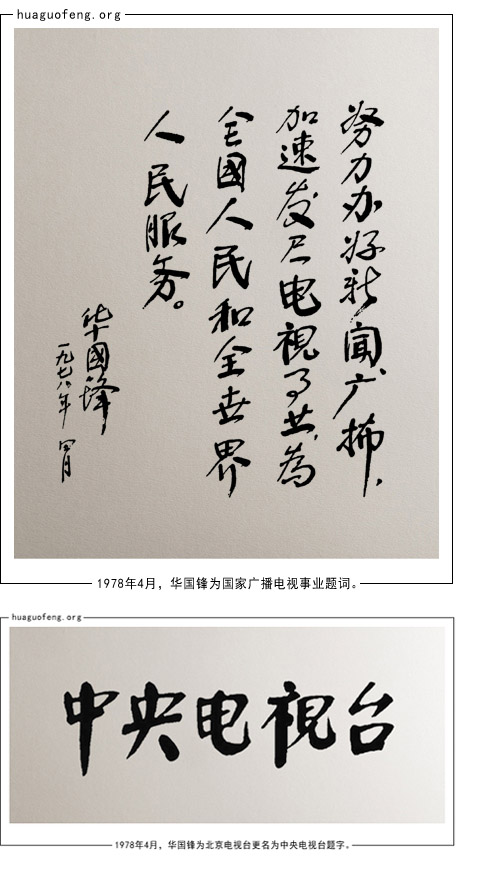 huaguofeng.org
努力办好新聞广播，
加速发展电視事业，為
全國人民和全世界
人民服务。
华國鋒
一九七八年 四月
1978年4月，华国锋为国家广播电视事业题词。
huaguofeng.org
中央电視台
1978年4月，华国锋为北京电视台更名为中央电视台题字。